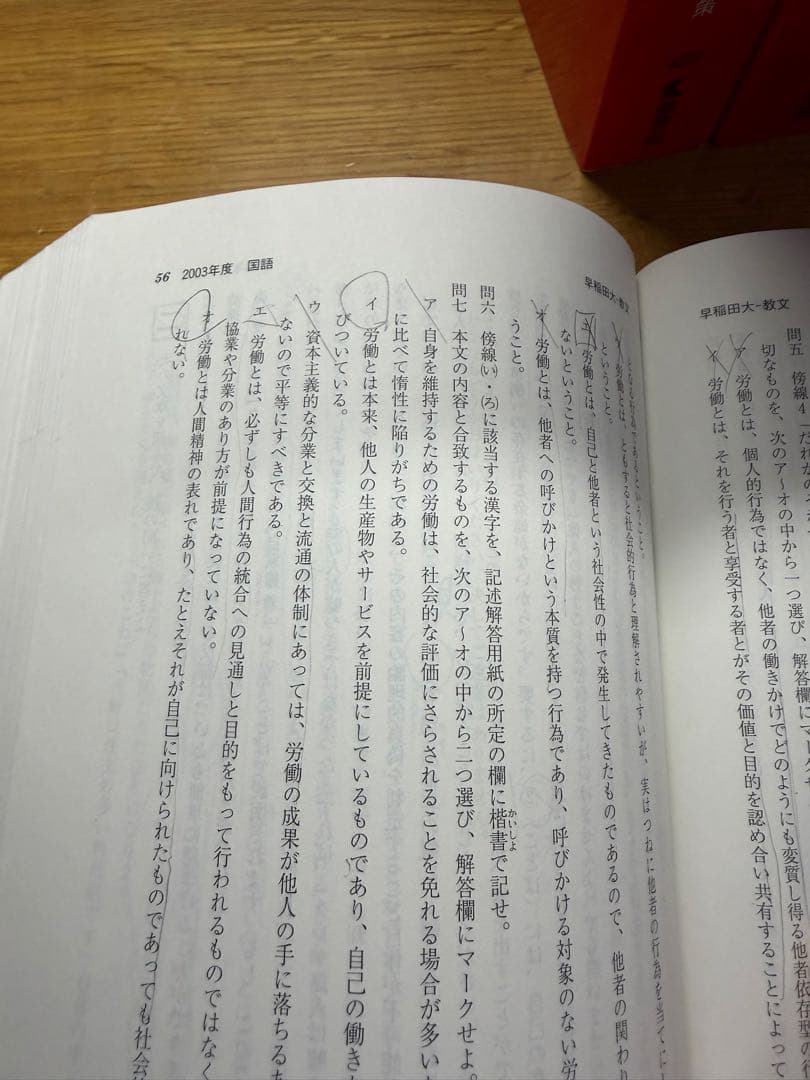 策
早稲田大-教文
問五 傍線4「だれかの
切なものを、次のア〜オの中から一つ選び、解答欄にマークせ
ア 労働とは、個人的行為ではなく、他者の働きかけでどのようにも変質し得る他者依存型の行
イ 労働とは、それを行う者と享受する者とがその価値と目的を認め合い共有することによって
56 2003年度 国語
早稲田大-教文
であるということ。
労働とは、ともすると社会的行為と理解されやすいが、実はつねに他者の行為を当てに
ということ。
エ 労働とは、自己と他者という社会性の中で発生してきたものであるので、他者の関わり
ないということ。
オ 労働とは、他者への呼びかけという本質を持つ行為であり、呼びかける対象のない労
うこと。
問六 傍線(い)・(ろ)に該当する漢字を、記述解答用紙の所定の欄に楷書で記せ。
かいしょ
問七 本文の内容と合致するものを、次のア〜オの中から二つ選び、解答欄にマークせよ。
ア 自身を維持するための労働は、社会的な評価にさらされることを免れる場合が多い
に比べて惰性に陥りがちである。
イ 労働とは本来、他人の生産物やサービスを前提にしているものであり、自己の働き
びついている。
ウ 資本主義的な分業と交換と流通の体制にあっては、労働の成果が他人の手に落ちる
ないので平等にすべきである。
エ 労働とは、必ずしも人間行為の統合への見通しと目的をもって行われるものではなく
協業や分業のあり方が前提になっていない。
オ 労働とは人間精神の表れであり、たとえそれが自己に向けられたものであっても社会
れない。